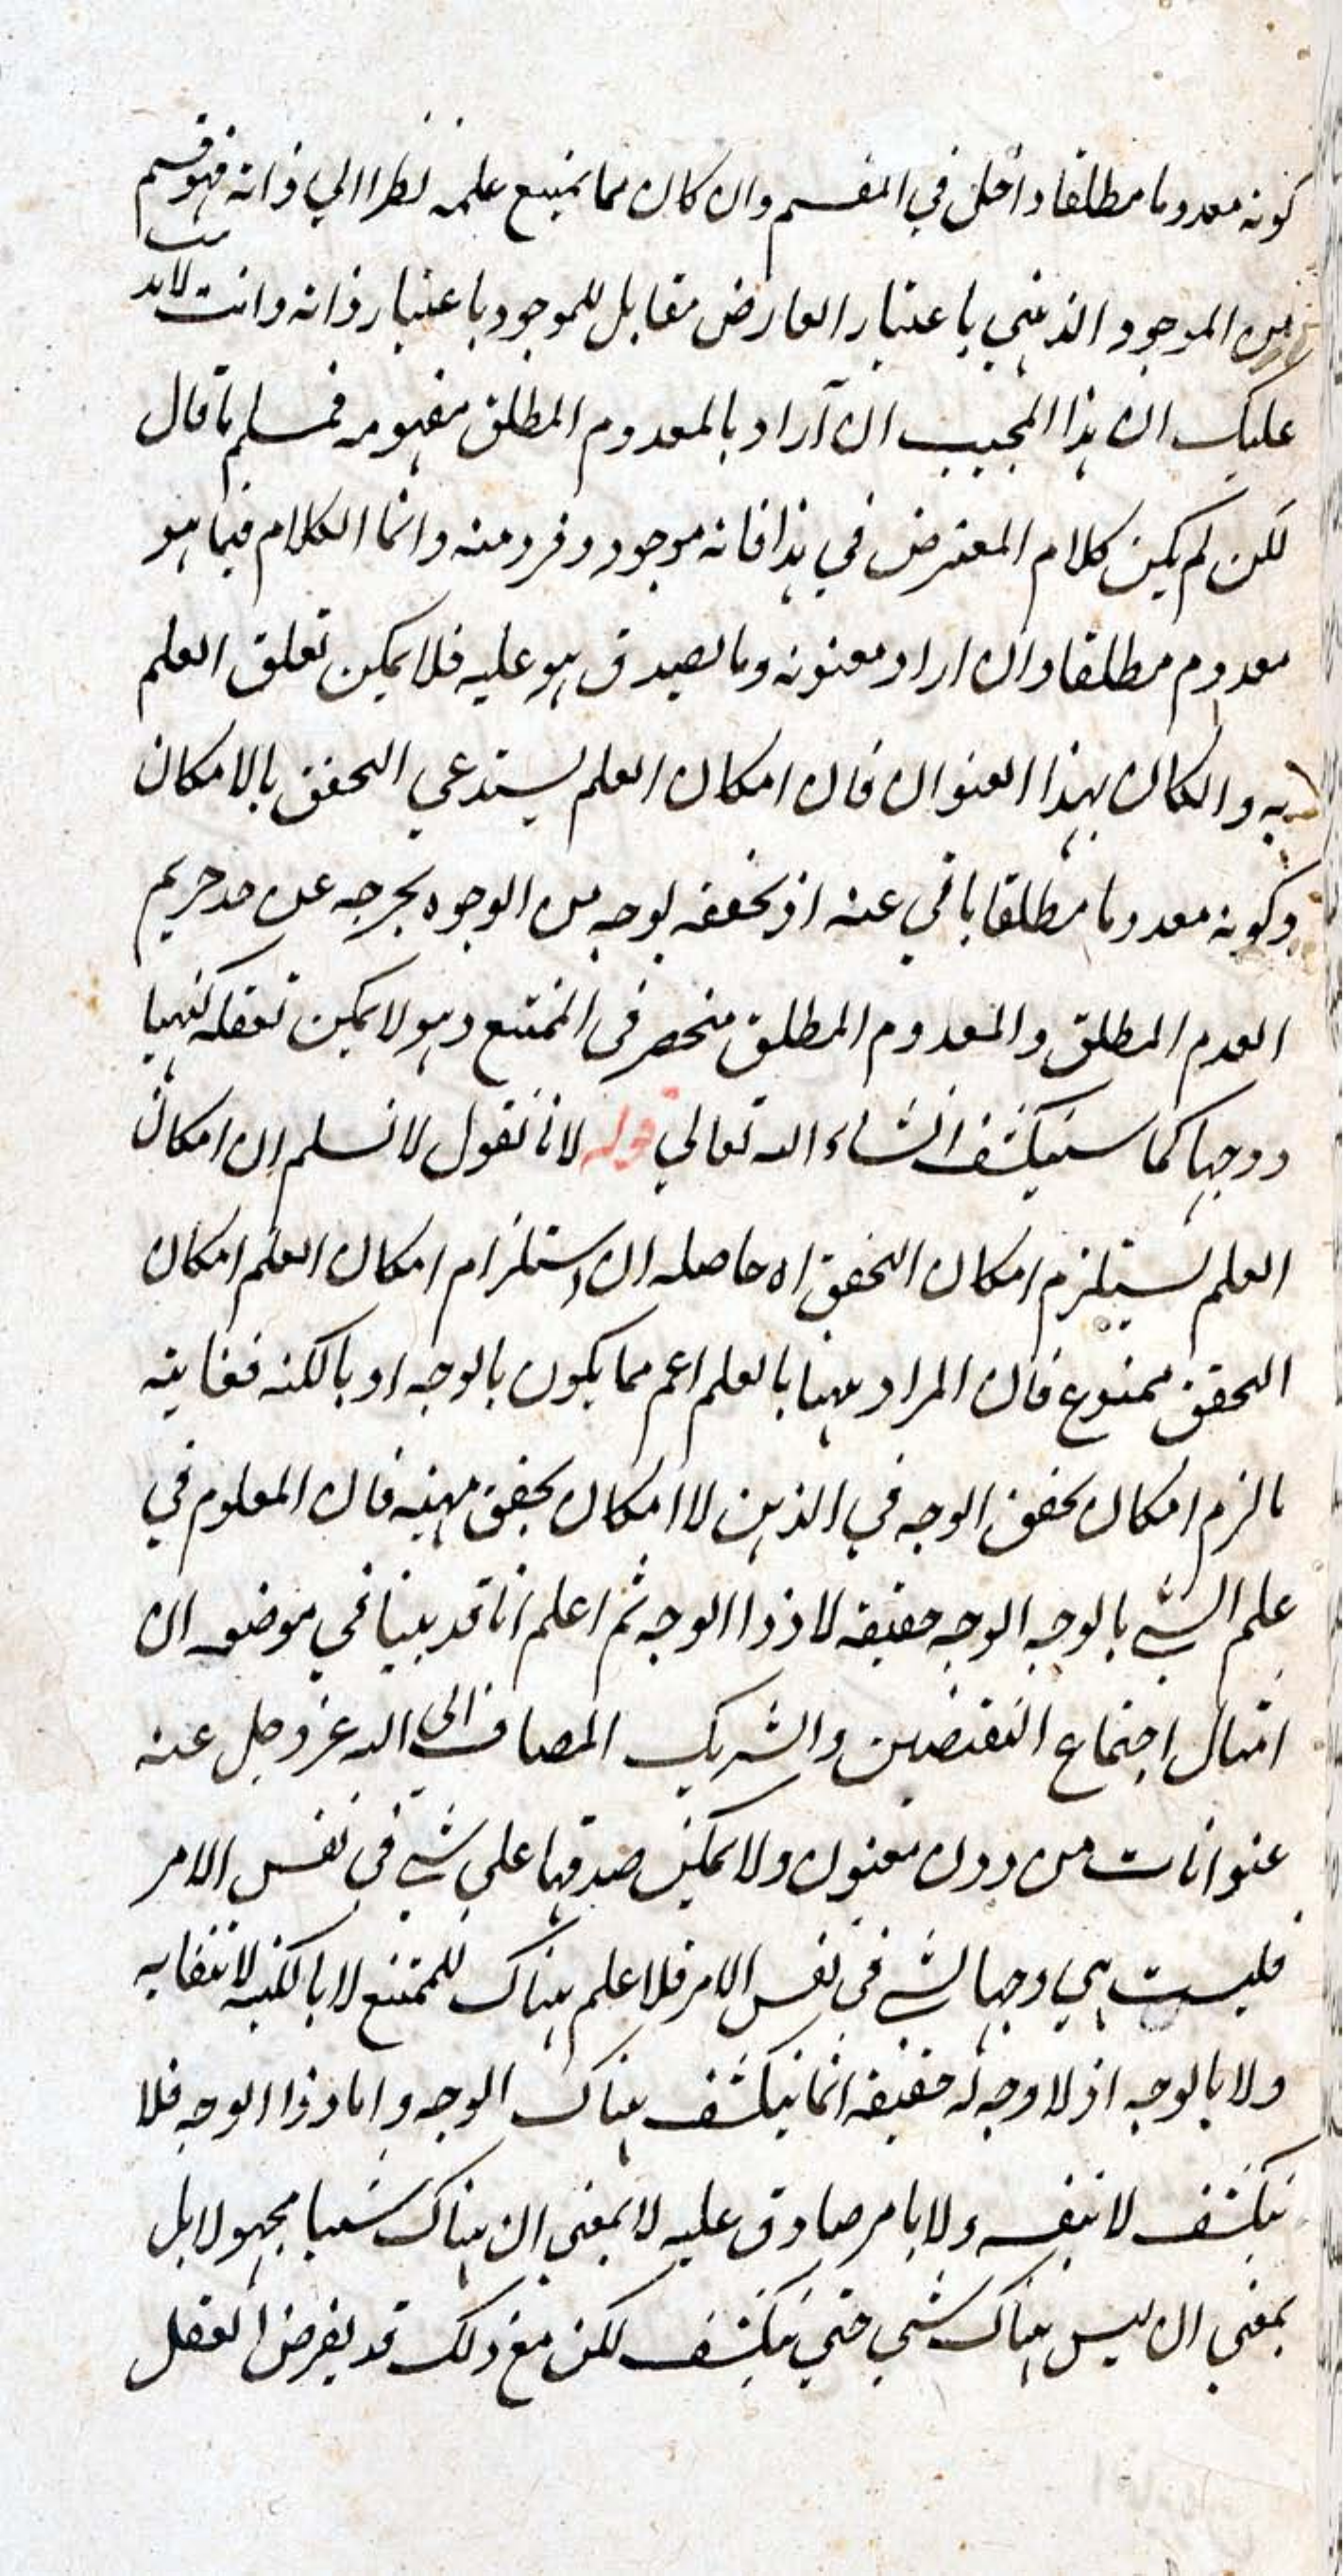 كونه معدوما مطلقا داخل في المقسم وان كان مما يمتنع علمه نظرا الي ذاته فهو قسم
من الموجود الذهني باعتبار العارض مقابل للموجود باعتبار ذاته وانت لا
عليك ان هذا المجيب ان اراد بالمعدوم المطلق مفهومه فمسلم ما قال
لكن لم يكن كلام المعترض في هذا فانه موجود وفرد منه وانما الكلام فيما هو
معدوم مطلقا وان اراد معنونه وما يصدق هو عليه فلا يمكن تعلق العلم
به والكان بهذا العنوان فان امكان العلم يستدعي التحقق بالامكان
وكونه معدوما مطلقا يابي عنه اذ تحققه بوجه من الوجوه يخرجه عن حد حريم
العدم المطلق والمعدوم المطلق منحصر في الممتنع وهو لا يمكن تعقله كنها
ووجها كما سينكشف انشاء الله تعالي قوله لانا نقول لا نسلم ان امكان
العلم يستلزم امكان التحقق اه حاصله ان استلزام امكان العلم امكان
التحقق ممنوع فان المراد ههنا بالعلم اعم مما يكون بالوجه او بالكنه فغايته
ما لزم امكان تحقق الوجه في الذهن لا امكان تحقق مهيته فان المعلوم في
علم الشي بالوجه الوجه حقيقة لا ذو الوجه ثم اعلم انا قد بينا في موضعه ان
امثال اجتماع النقيضين والشريك المضاف الى الله عز وجل عنه
عنوانات من دون معنون ولا يمكن صدقها علي شي في نفس الامر
فليست هي وجها لشي في نفس الامر فلا علم هناك للممتنع لا بالكنه لانتفايه
ولا بالوجه اذ لا وجه له حقيقة انما ينكشف هناك الوجه واما ذو الوجه فلا
ينكشف لا بنفسه ولا بامر صادق عليه لا بمعني ان هناك شييا مجهولا بل
بمعني ان ليس هناك شي حتي ينكشف لكن مع ذلك قد يفرض العقل